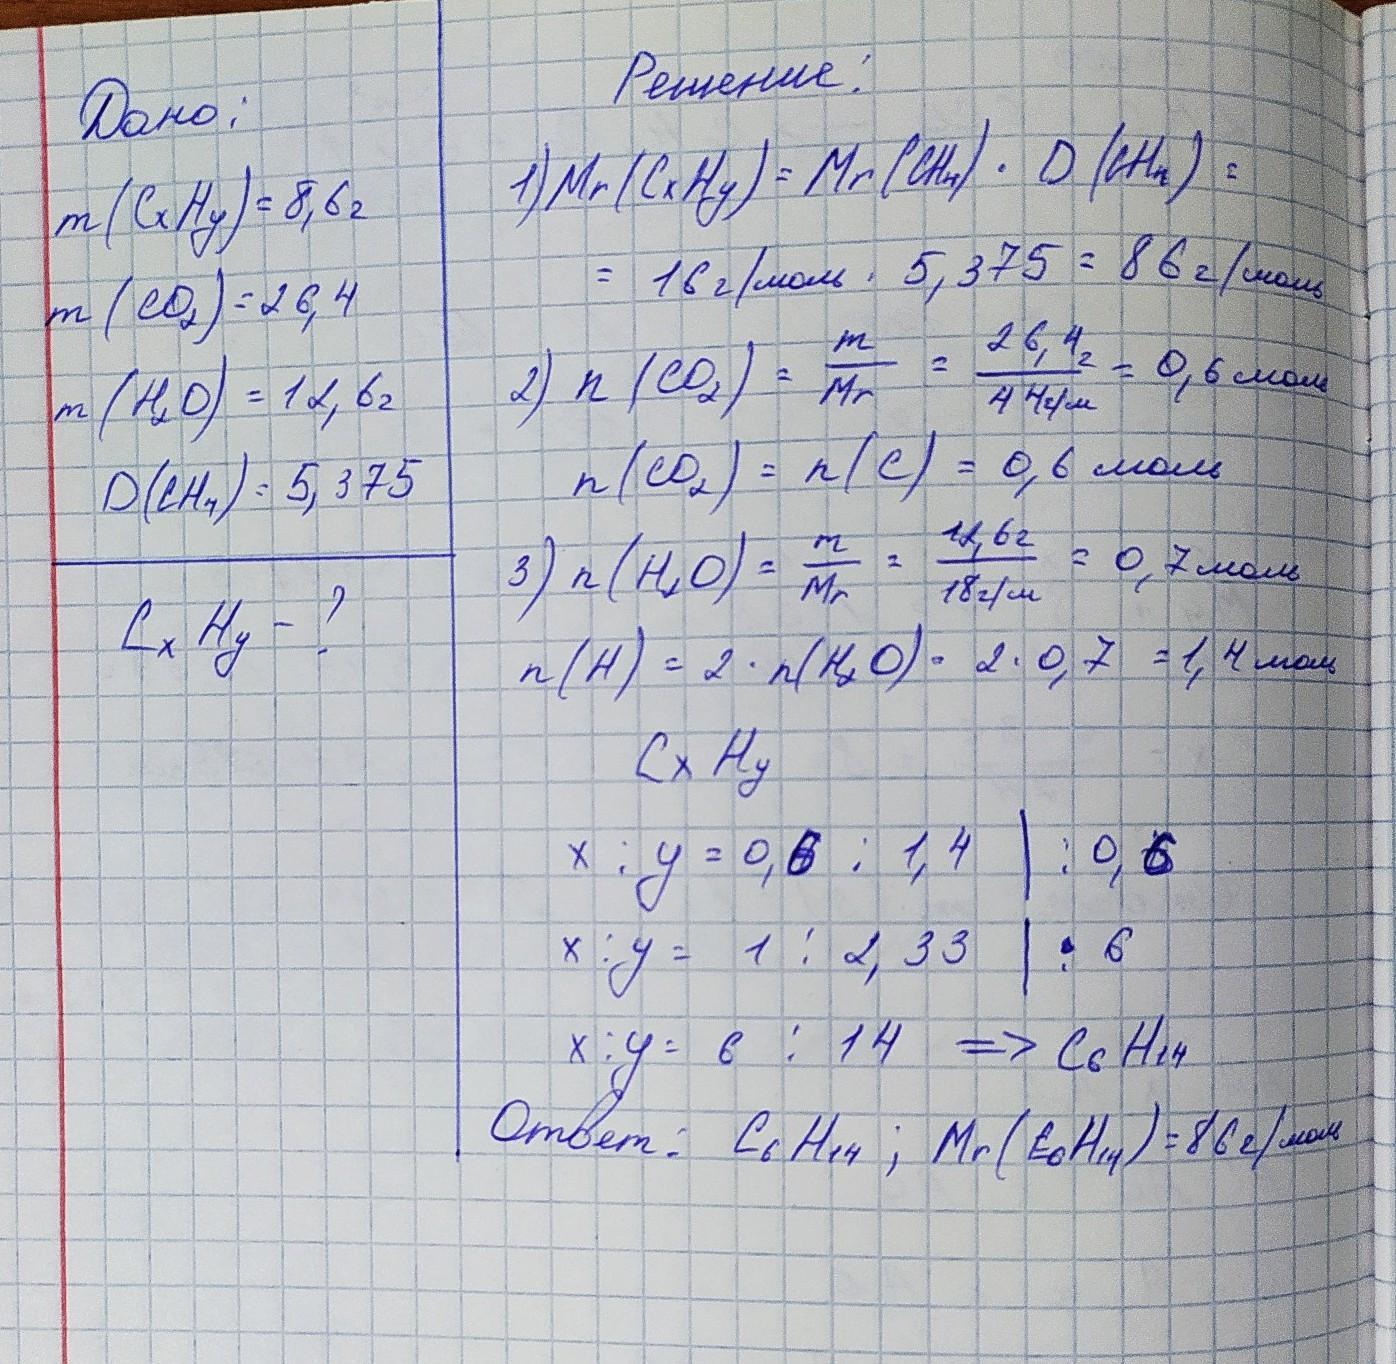 Дано:
m(CxHy)=8,6г
m(CO₂)=26,4
m(H₂O)=12,6г
D(CH₄)=5,375
CxHy - ?
Решение:
1) Mr(CxHy)=Mr(CH₄)·D(CH₄)=
= 16г/моль · 5,375 = 86г/моль
2) n(CO₂) = m/Mr = 26,4г/44г/м = 0,6 моль
n(CO₂) = n(C) = 0,6 моль
3) n(H₂O) = m/Mr = 12,6г/18г/м = 0,7 моль
n(H) = 2·n(H₂O) = 2·0,7 = 1,4 моль
CxHy
x : y = 0,6 : 1,4 | : 0,6
x : y = 1 : 2,33 | · 6
x : y = 6 : 14 => C₆H₁₄
Ответ: C₆H₁₄; Mr(C₆H₁₄)=86г/моль